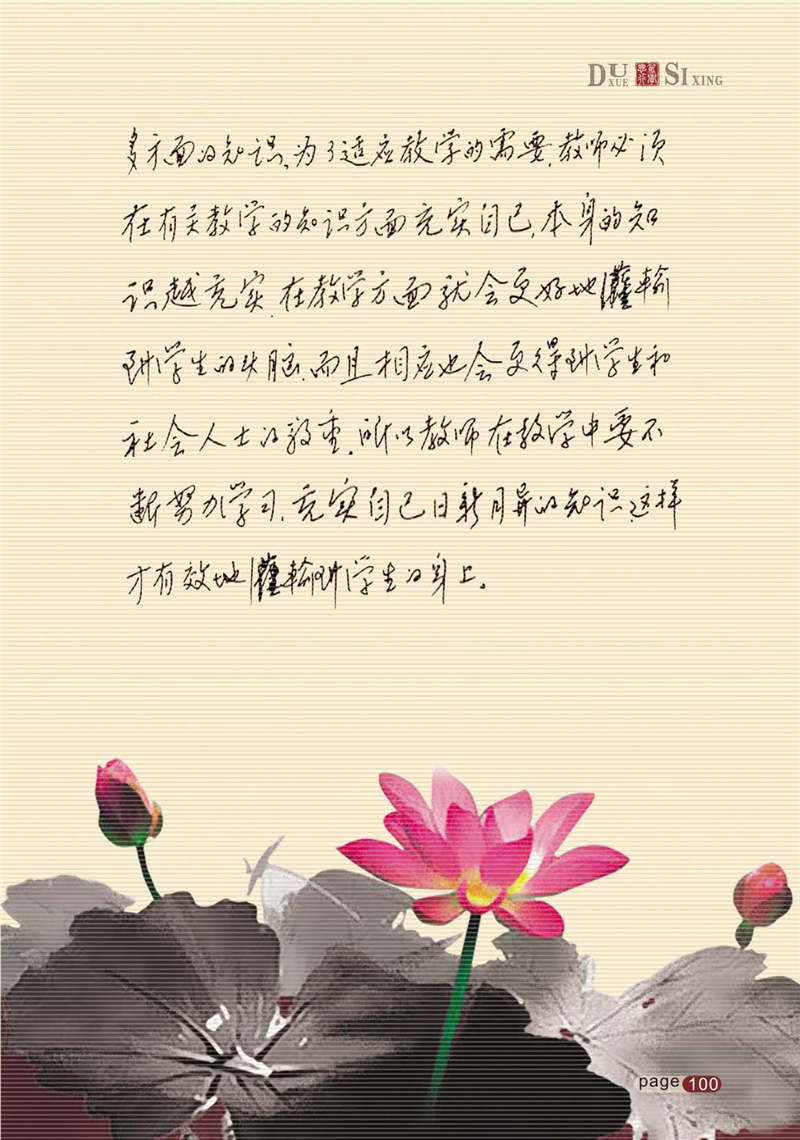 DU XUE 笃学思行 SI XING
多方面的知识、为了适应教学的需要,教师必须
在有关教学的知识方面充实自己,本身的知
识越充实,在教学方面就会更好地灌输
到学生的头脑,而且相应也会更得到学生和
社会人士的敬重,所以教师在教学中要不
断努力学习,充实自己日新月异的知识,这样
才有效地灌输到学生的身上。
page 100